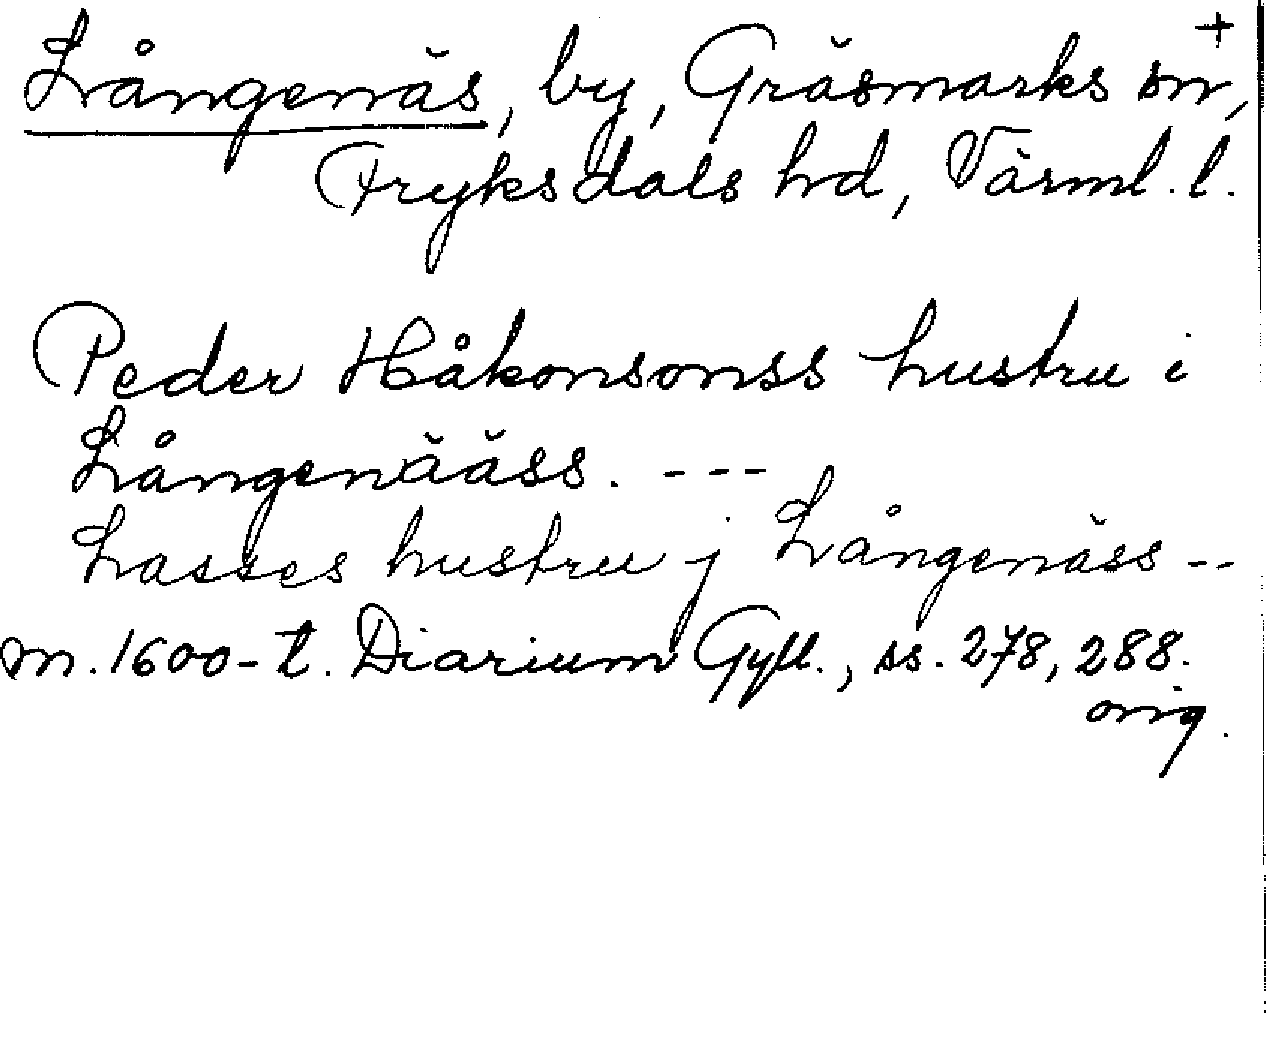 +
Långenäs, by, Gräsmarks sn,
Fryksdals hd, Värml. l.
Peder Håkonsonss hustru i
Långenääss. ---
Lasses hustru j Långenäss --
m. 1600-t. Diarium Gyll., ss. 278, 288.
orig.